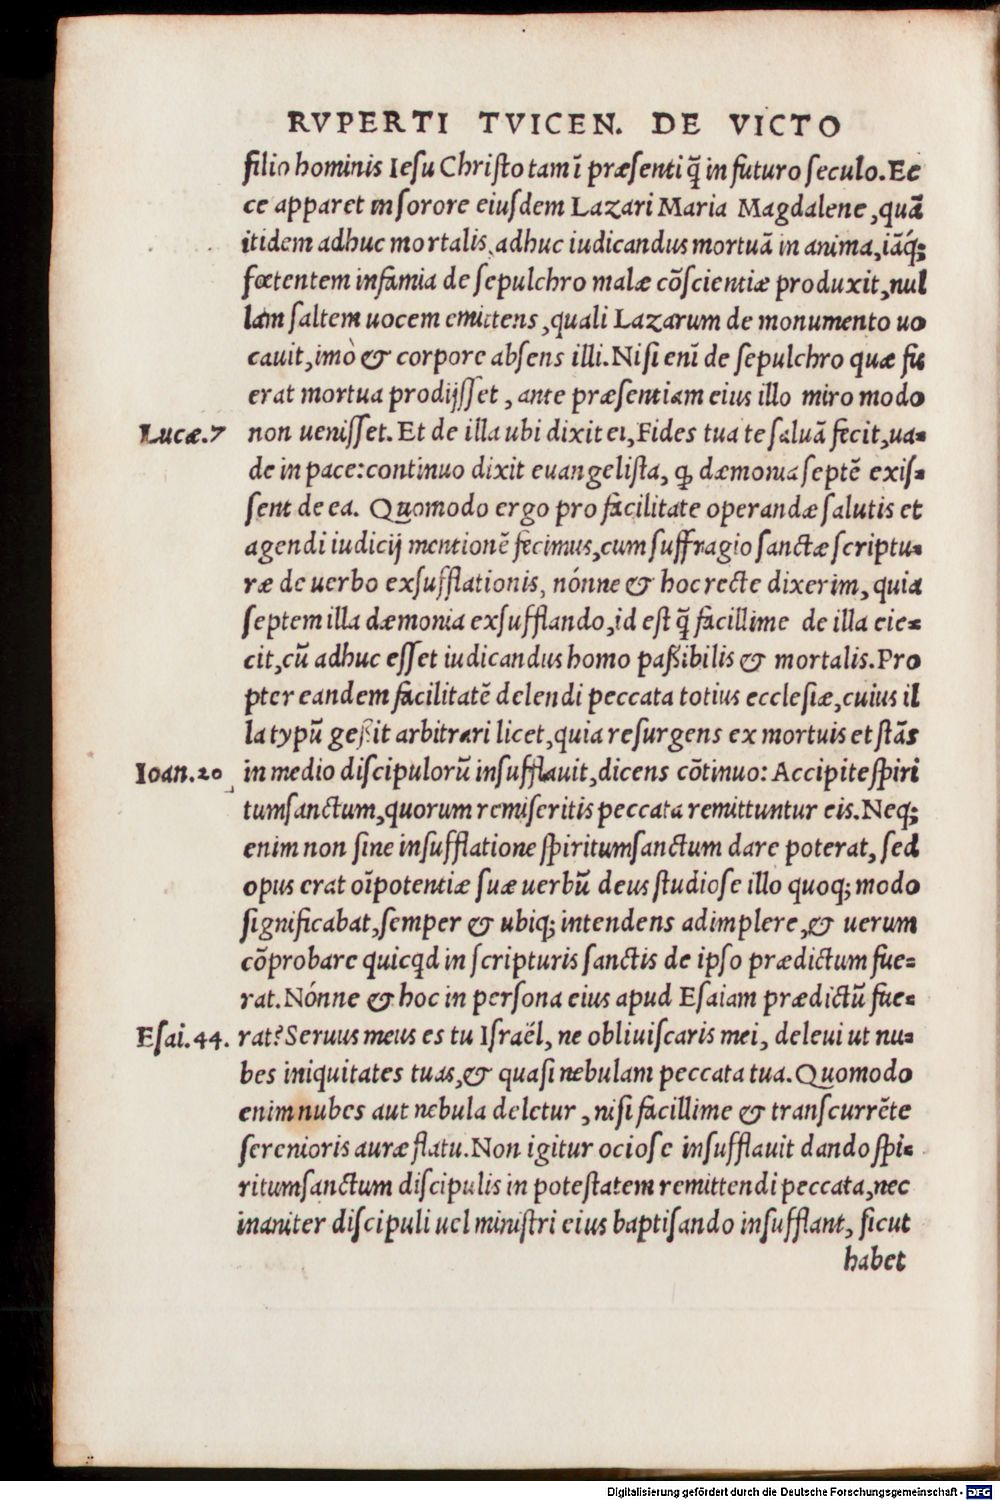 RVPERTI TVICEN. DE VICTO
filio hominis Iesu Christo tam ī præsenti q̃ in futuro seculo. Ec
ce apparet in sorore eiusdem Lazari Maria Magdalene, quā
itidem adhuc mortalis, adhuc iudicandus mortuā in anima, iāq́;
fœtentem infamia de sepulchro malæ cōscientiæ produxit, nul
lam saltem uocem emittens, quali Lazarum de monumento uo
cauit, imò & corpore absens illi. Nisi enī de sepulchro quæ fu
erat mortua prodijsset, ante præsentiam eius illo miro modo
Lucæ.7 non uenisset. Et de illa ubi dixit ei, Fides tua te saluā fecit, ua-
de in pace: continuo dixit euangelista, ꝙ dæmonia septē exis-
sent de ea. Quomodo ergo pro facilitate operandæ salutis et
agendi iudicij mentionē fecimus, cum suffragio sanctæ scriptu-
ræ de uerbo exsufflationis, nónne & hoc recte dixerim, quia
septem illa dæmonia exsufflando, id est q̃ facillime de illa eie-
cit, cū adhuc esset iudicandus homo paßibilis & mortalis. Pro
pter eandem facilitatē delendi peccata totius ecclesiæ, cuius il
la typū geßit arbitrari licet, quia resurgens ex mortuis et stās
Ioan.20 in medio discipulorū insufflauit, dicens cōtinuo: Accipite spiri
tumsanctum, quorum remiseritis peccata remittuntur eis. Neq;
enim non sine insufflatione spiritumsanctum dare poterat, sed
opus erat oīpotentiæ suæ uerbū deus studiose illo quoq; modo
significabat, semper & ubiq; intendens adimplere, & uerum
cōprobare quicqd in scripturis sanctis de ipso prædictum fue-
rat. Nónne & hoc in persona eius apud Esaiam prædictū fue-
Esai.44. rat? Seruus meus es tu Israël, ne obliuiscaris mei, deleui ut nu-
bes iniquitates tuas, & quasi nebulam peccata tua. Quomodo
enim nubes aut nebula deletur, nisi facillime & transcurrēte
serenioris auræ flatu. Non igitur ociose insufflauit dando spi-
ritumsanctum discipulis in potestatem remittendi peccata, nec
inaniter discipuli uel ministri eius baptisando insufflant, sicut
habet
Digitalisierung gefördert durch die Deutsche Forschungsgemeinschaft - DFG